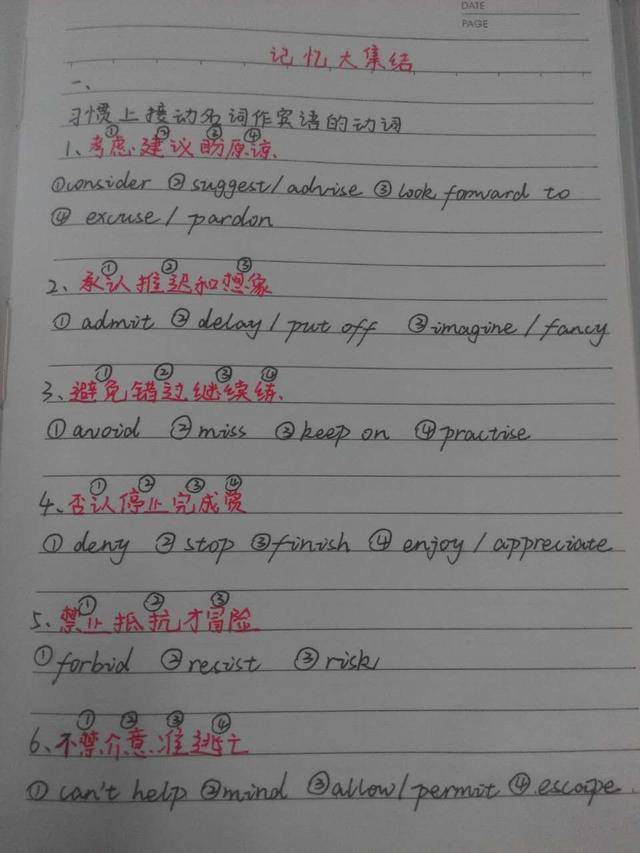 DATE
PAGE
记忆大集结
一、
习惯上接动名词作宾语的动词
① ② ③ ④
1、考虑建议盼原谅.
①consider ②suggest/advise ③look forward to
④ excuse/pardon
① ② ③
2、承认推迟和想象
① admit ② delay/put off ③imagine/fancy
① ② ③ ④
3、避免错过继续练.
①avoid ②miss ③keep on ④practise
① ② ③ ④
4、否认停止完成爱
① deny ②stop ③finish ④ enjoy/appreciate
① ② ③
5、禁止抵抗才冒险
①forbid ②resist ③risk
① ② ③ ④
6、不禁介意准逃亡
① can't help ②mind ③allow/permit ④escape.